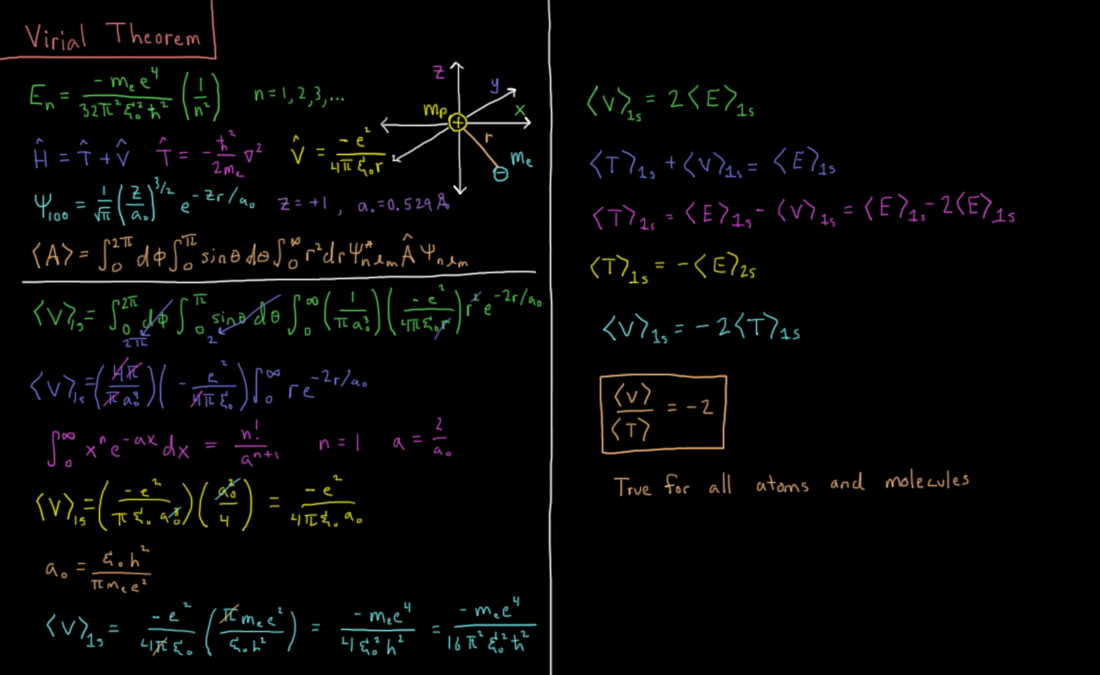 Virial Theorem
Eₙ = -mₑe⁴ / 32π²ε₀²ħ² (1/n²) n = 1, 2, 3, ...
Ĥ = T̂ + V̂ T̂ = -ħ²/2mₑ ∇² V̂ = -e² / 4πε₀r
ψ₁₀₀ = 1/√π (Z/a₀)^3/2 e^-Zr/a₀ Z = +1 , a₀ = 0.529 Å
⟨A⟩ = ∫₀^2π dϕ ∫₀^π sinθ dθ ∫₀^∞ r² dr ψ*ₙₗₘ Â ψₙₗₘ
z
y
x
mₚ
r
mₑ
⟨V⟩₁ₛ = ∫₀^2π dϕ ∫₀^π sinθ dθ ∫₀^∞ (1/πa₀³) (-e²/4πε₀r) r² e^-2r/a₀
2π 2
⟨V⟩₁ₛ = (4π/πa₀³) (- e²/4πε₀) ∫₀^∞ r e^-2r/a₀
∫₀^∞ xⁿ e^-ax dx = n!/aⁿ⁺¹ n = 1 a = 2/a₀
⟨V⟩₁ₛ = (-e²/πε₀a₀³) (a₀²/4) = -e²/4πε₀a₀
a₀ = ε₀h²/πmₑe²
⟨V⟩₁ₛ = -e²/4πε₀ (πmₑe²/ε₀h²) = -mₑe⁴/4ε₀²h² = -mₑe⁴/16π²ε₀²ħ²
⟨V⟩₁ₛ = 2⟨E⟩₁ₛ
⟨T⟩₁ₛ + ⟨V⟩₁ₛ = ⟨E⟩₁ₛ
⟨T⟩₁ₛ = ⟨E⟩₁ₛ - ⟨V⟩₁ₛ = ⟨E⟩₁ₛ - 2⟨E⟩₁ₛ
⟨T⟩₁ₛ = -⟨E⟩₂ₛ
⟨V⟩₁ₛ = -2⟨T⟩₁ₛ
⟨V⟩/⟨T⟩ = -2
True for all atoms and molecules